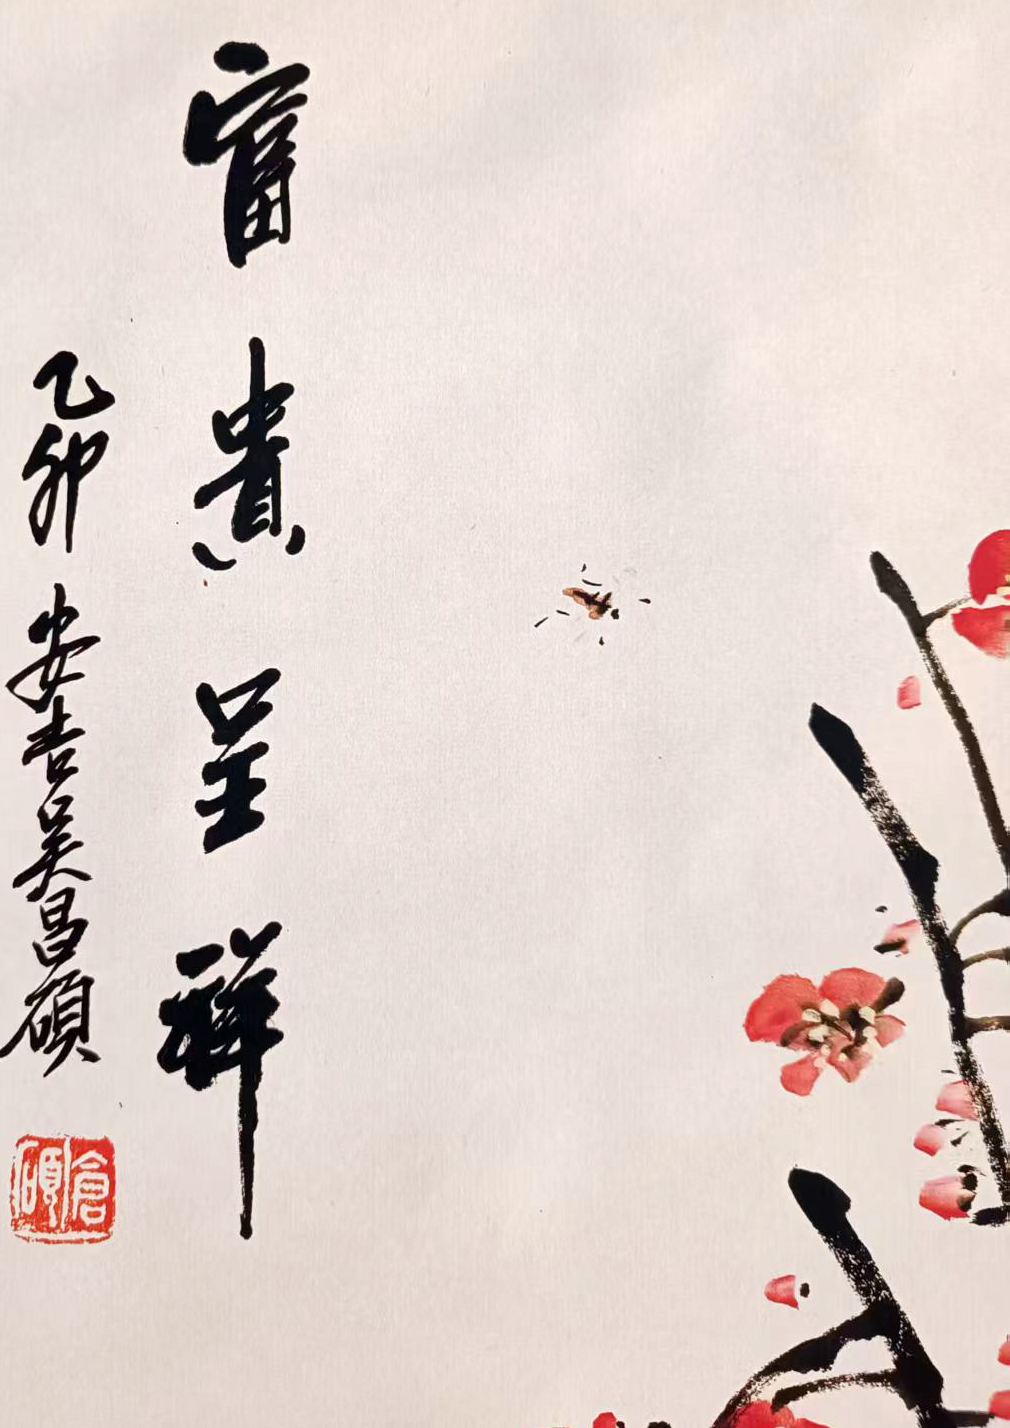 富貴呈祥
乙卯安吉吴昌碩
倉碩